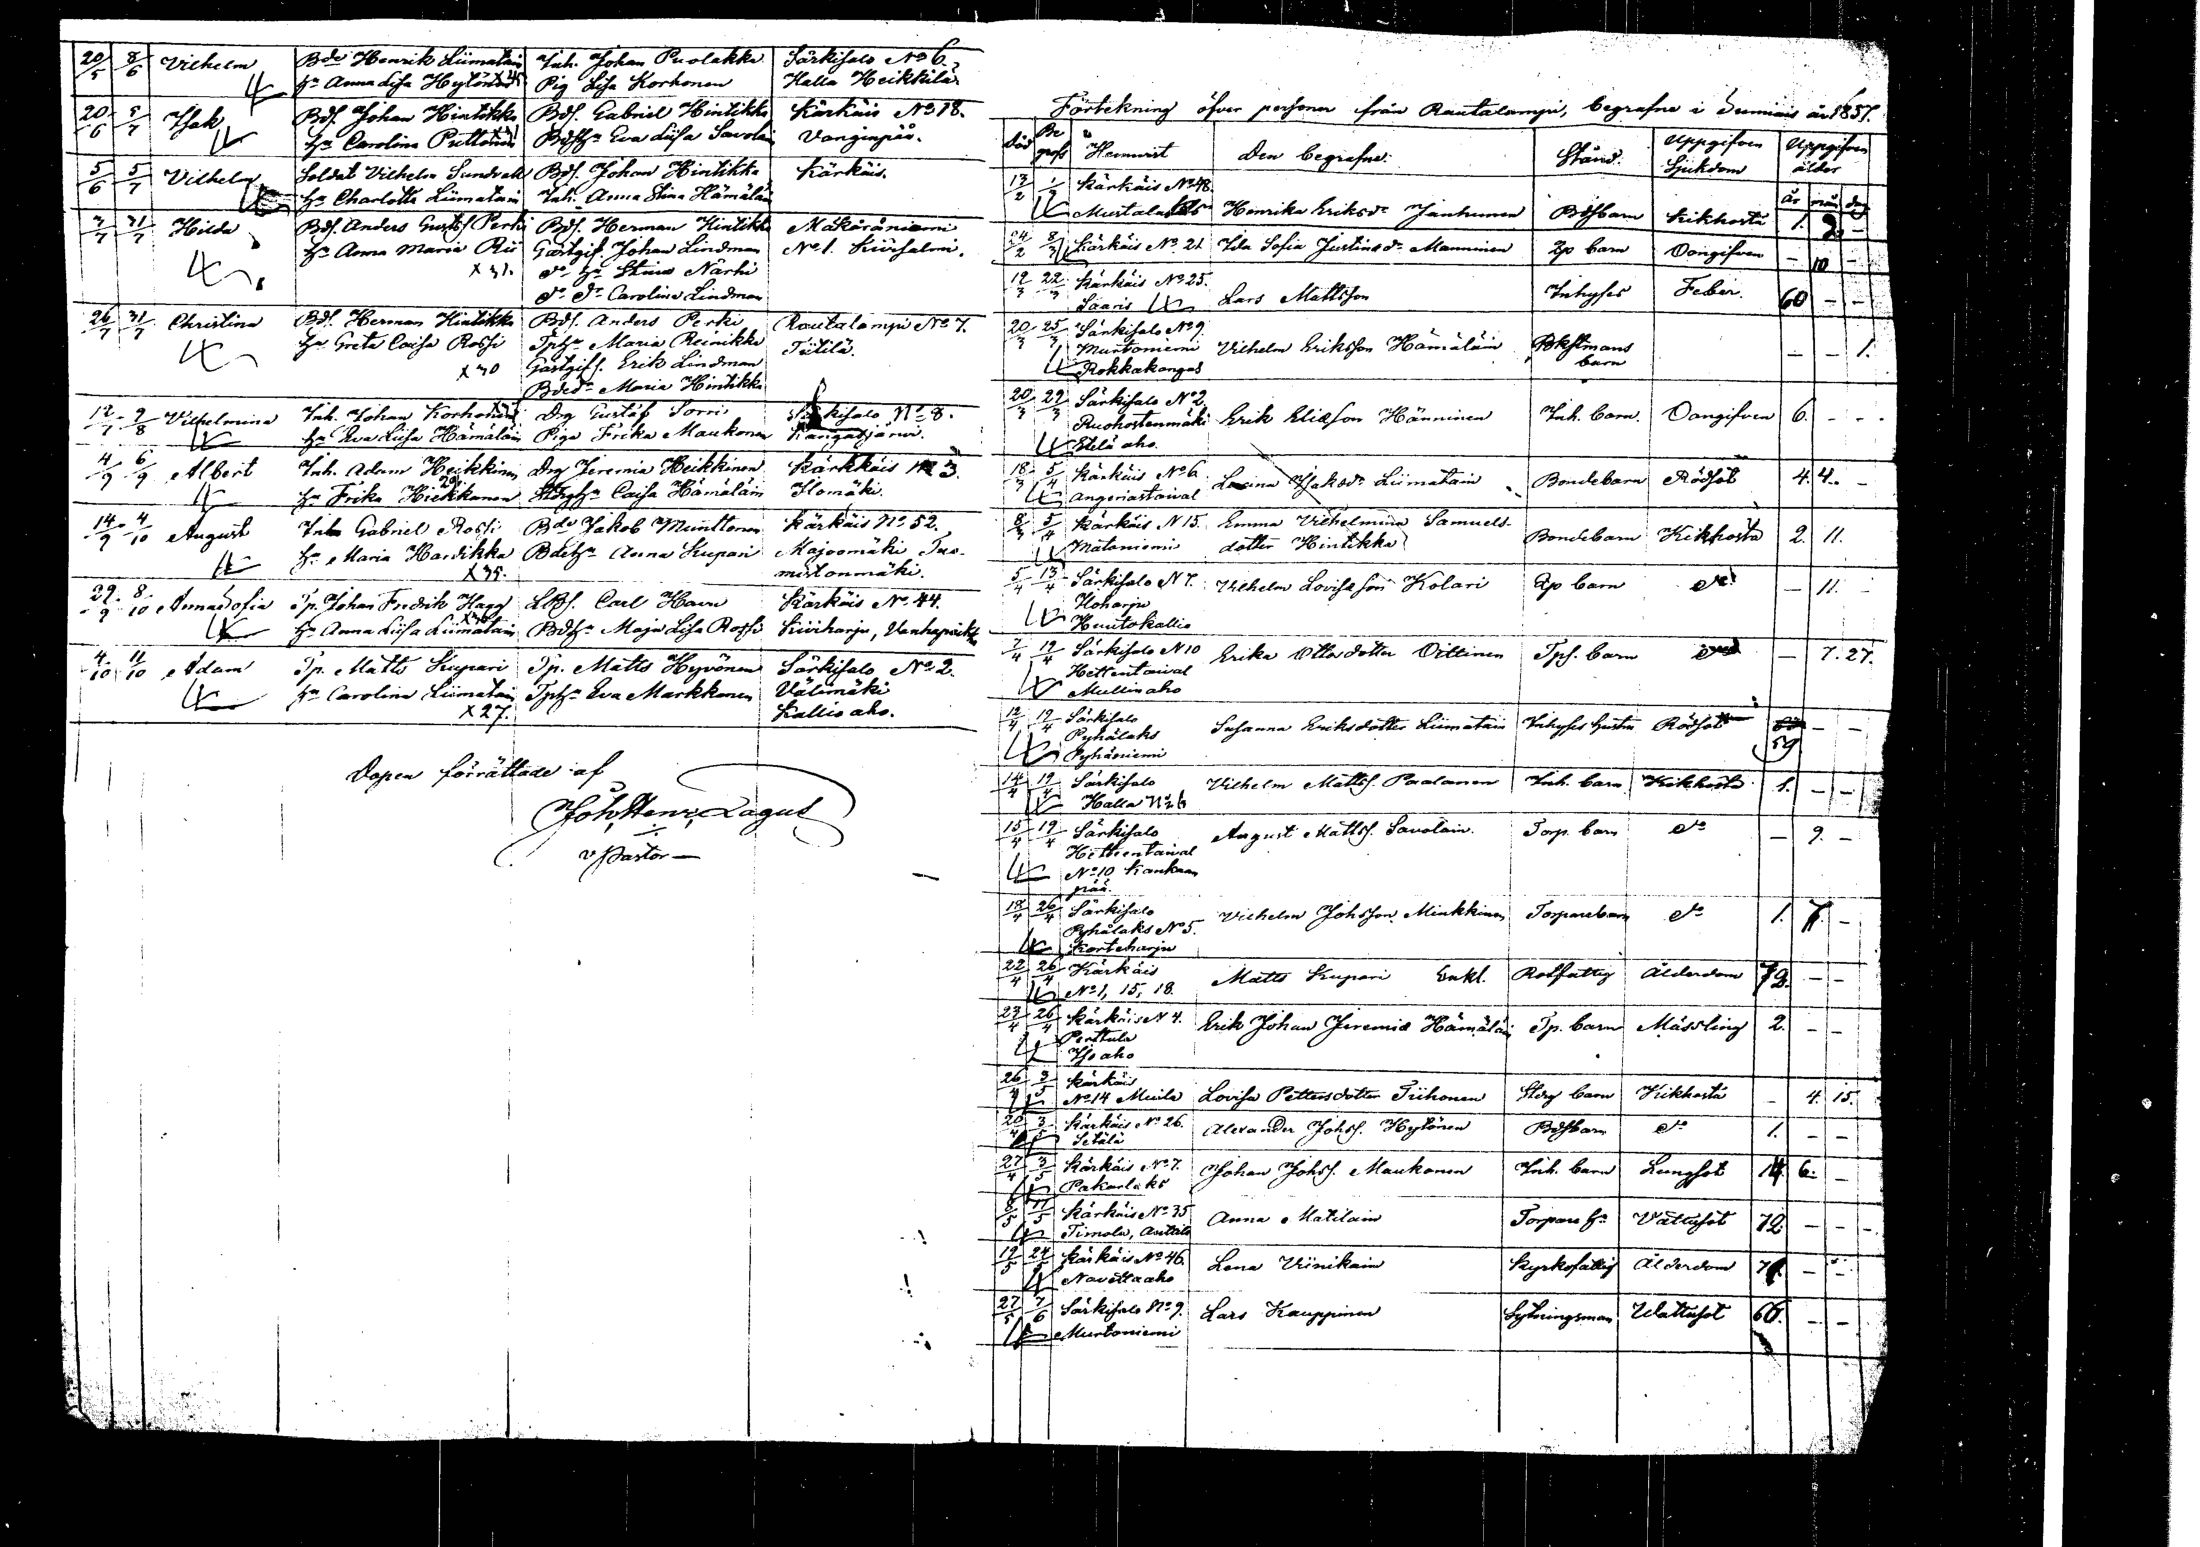 20/5 8/6 Vilhelm Bde Henrik Liimatain Inh. Johan Puolakka Särkisalo No 6.
hu Anna Lisa Hytönen X45 Pig Lisa Korhonen Halla Heikkilä
20/6 5/7 Isak Bdf. Johan Hintikka Bdf. Gabriel Hintikka Kärkäis No 18.
hu Carolina Puttonen Bdfhu Eva Lisa Savolain Vanginpää.
5/6 5/7 Vilhelm Soldat Vilhelm Sundvall Bdf. Johan Hintikka Kärkäis.
hu Charlotta Liimatain Inh. Anna Stina Hämäläin
7/7 31/7 Hilda Bdf. Anders Gustaf Perki Bdf. Herman Hintikka Mäkäräniemi
hu Anna Maria Gästgif. Johan Lindman No 1. Kiirsalmi.
X 31. do hu Stina Närhi
do do Carolina Lindman
26/7 31/7 Christina Bdf. Herman Hintikka Bdf. Anders Perki Rautalampi No 7.
hu Greta Caisa Rossi Tpfhu Maria Reinikka Tiitilä.
X 30 Gästgif. Erik Lindman
Bdedr Maria Hintikka
12/7 9/8 Vilhelmina Inh. Johan Korhonen Drg Gustaf Sorri Särkisalo No 8.
hu Eva Lisa Hämäläin Piga Frika Maukonen Kangasjärvi.
4/9 6/9 Albert Inh. Adam Heikkinen Drg Jeremia Heikkinen Kärkkäis No 3.
hu Frika Hiekkanen 29 Caisa Hämäläin Ilomäki.
14/9 4/10 August Inh Gabriel Rossi Bde Jakob Minttonen Kärkäis No 52.
hu Maria Hardikka Bdehu Anna Kupari Majoomäki Tuo-
X 35. mistonmäki.
29/9 8/10 Anna Sofia Tp. Johan Fredrik Hagg Carl Havu Kärkäis No. 44.
hu Anna Lisa Liimatain Bdfhu Maja Lisa Rossi Kiviharju,
4/10 11/10 Adam Tp. Matts Kupari Tp. Matts Hyvönen Särkisalo No 2.
hu Carolina Liimatain Tphu Eva Markkanen Välimäki
X 27. Kallioaho.
Dopen förrättade af
Joh. Henr. Lagus
v Pastor
Förtekning öfver personer från Rautalampi, begrafne i Sumiais år 1857.
Död Be grafs Hemvist Den begrafne. Stånd. Uppgifven Sjukdom Uppgifven ålder
år mån dag
13/2 1/3 Kärkäis No 48.
Mustalaks Henrika Eriksdr Janhunen Bdfbarn Kikhosta 1. 2. -
24/2 8/3 Kärkäis No 21 Ida Sofia Justinadr Manninen Lp barn Oangifven - 10 -
12/3 22/3 Kärkäis No 25.
Saaris Lars Mattsson Inhyses Feber. 60 - -
20/3 25/3 Särkisalo No 9.
Murtoniemi Vilhelm Eriksson Hämäläin Bkfmans barn - - 1.
Rokkakangas
20/3 29/3 Särkisalo No 2.
Ruohostenmäki Erik Eliasson Hänninen Inh. barn. Oangifven 6. - -
Etelä aho.
18/3 5/4 Kärkäis No 6. Isaksdr Liimatain Bondebarn Rödsot 4. 4. -
Angeriastaival
8/3 5/4 Kärkäis N 15. Emma Vilhelmina Samuels-
Mataniemi dotter Hintikka Bondebarn Kikhosta 2. 11.
5/4 13/4 Särkisalo N 7. Vilhelm Lovisason Kolari Lp barn do - 11. -
Iloharju
Huutokallio
7/4 19/4 Särkisalo N 10 Erika Ottodotter Oittinen Tpf. barn do - 7. 27.
Hettentaival
Mullinaho
12/4 19/4 Särkisalo
Pyhälaks Susanna Eriksdotter Liimatain Inhyses hustru Rödsot 59 - -
Pyhäniemi
14/4 19/4 Särkisalo Vilhelm Mattsf. Paalanen Inh. barn Kikhosta 1. - -
Halla No 6
15/4 19/4 Särkisalo August Mattsf. Savolain. Torp. barn do - 9. -
Hettentaival
No 10 Kankaan
pää.
18/4 26/4 Särkisalo Vilhelm Johsson Minkkinen Torparebarn do 1. 7. -
Pyhälaks No 5.
Korteharju
22/4 26/4 Kärkäis Matts Kupari Enkl. Rotfattig Ålderdom 72. - -
No 1, 15, 18.
23/4 26/4 Kärkäis N 4. Erik Johan Jeremias Hämäläin Tp. barn Mässling 2. - -
Perttula
Iso aho
26/4 3/5 Kärkäis
No 14 Muila Lovisa Pettersdotter Tiihonen Stdrg barn Kikhosta - 4. 15.
28/4 3/5 Kärkäis No 26. Alexander Johsf. Hytönen Bdfbarn do 1. - -
Setälä
27/4 3/5 Kärkäis No 7. Johan Johsf. Maukonen Inh. barn Lungsot 14. 6. -
Pakarlaks
8/5 17/5 Kärkäis No 35 Anna Matilain Torpare hu Vattusot 72. - -
Timola, Autala
12/5 24/5 Kärkäis No 46. Lena Viinikain Kyrkofattig Ålderdom - -
Navettaaho
27/5 7/6 Särkisalo No 9. Lars Kauppinen Sytningsman Wattusot 66. - -
Murtoniemi